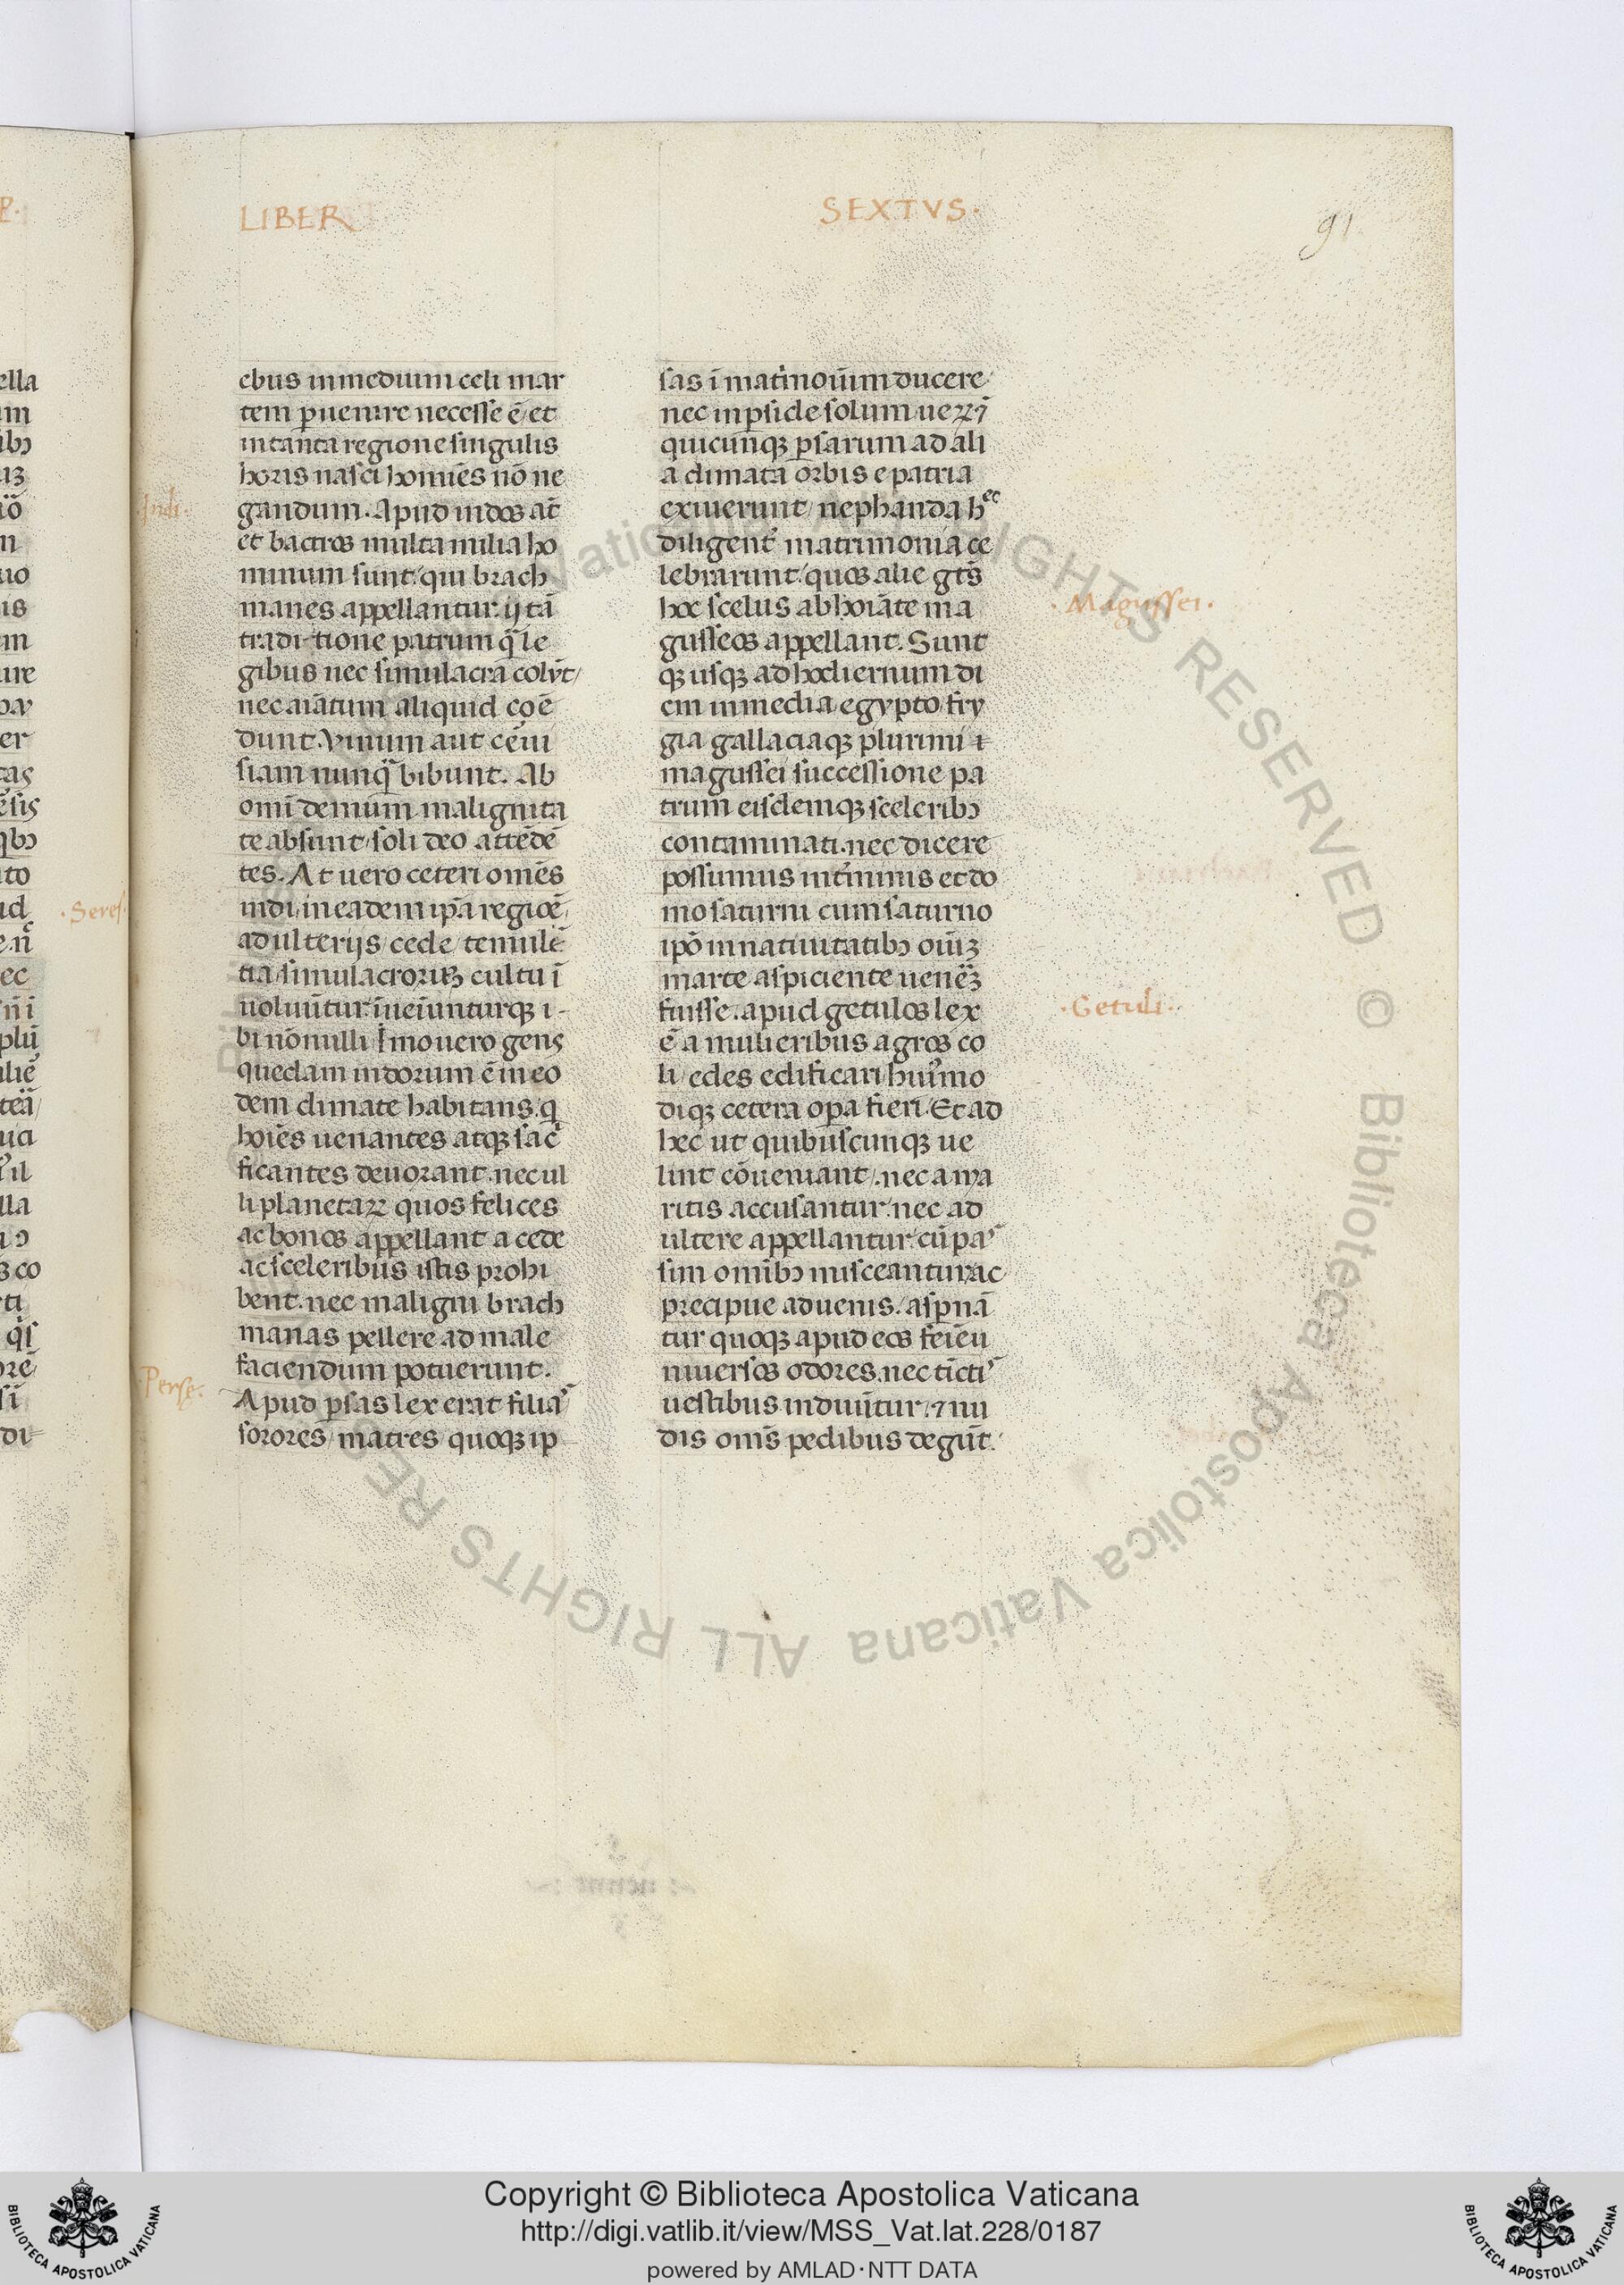 LIBER
SEXTVS.
91
ebus in medium celi mar
tem ꝑuenire necesse ē et
in tanta regione singulis
horis nasci homiēs nō ne
gandum. Apud indos at̄
et bactros multa milia ho
minum sunt/ qui brach
manes appellantur. ij tā
traditione patrum q̄ le
gibus nec simulacra colūt/
nec aīatum aliquid coē
dunt. Vinum aut ceruī
siam nunq̄ bibunt. Ab
omī demum malignita
te absunt/ soli deo attēdē
tes. At uero ceteri omēs
indi/ in eadem ip̄a regiōe/
adulterijs/ cede/ temulē
tia/ simulacroruꝫ cultu ī
uoluūtur. īueīunturqꝫ i-
bi nōnulli īmo uero gens
quedam indorum ē in eo
dem climate habitans. q̄
hoīes uenantes atqꝫ sac̄
ficantes deuorant. nec ul
li planetaꝝ quos felices
ac bonos appellant a cede
ac sceleribus istis prohi
bent. nec maligni brach
manas pellere ad male
faciendum potuerunt.
Apud ꝑsas lex erat filiaˢ
sorores/ matres quoqꝫ ip
sas ī matīmoūim ducere
nec in ꝑside solum ueꝝ ī
quicunqꝫ ꝑsarum ad ali
a climata orbis e patria
exiuerunt/ nephanda hᵉᶜ
diligent̄ matrimonia ce
lebrarunt/ quos alie gt̄s
hoc scelus abhoīāte ma
gusseos appellant. Sunt
qꝫ usqꝫ ad hodiernum di
em in media/ egypto/ fry
gia gallaciaqꝫ plurimi
magussei successione pa
trum eisdemqꝫ sceleribꝰ
contaminati. nec dicere
possumus in t̄minis et do
mo saturni cum saturno
ip̄o in natiuitatibꝰ oīuꝫ
marte aspiciente uenēꝫ
fuisse. apud getulos lex
ē a mulieribus agros co
li/ edes edificari/ huiꝰmo
diqꝫ cetera oꝑa fieri. Et ad
hec ut quibuscunqꝫ ue
lint cōueniant/. nec a ma
ritis accusantur/ nec ad
ultere appellantur/ cū paˢ
sim omībꝰ misceantur/ ac
precipue aduenis. asꝑnā
tur quoqꝫ apud eos feiēu
niuersos odores. nec tīctiˢ
uestibus induūtur/. ⁊ nu
dis omīs pedibus degūt.
Indi.
.Seres.
Perse.
.Magussei.
.Getuli.
Copyright © Biblioteca Apostolica Vaticana
http://digi.vatlib.it/view/MSS_Vat.lat.228/0187
powered by AMLAD·NTT DATA
BIBLIOTECA APOSTOLICA VATICANA
BIBLIOTECA APOSTOLICA VATICANA
© Biblioteca Apostolica Vaticana ALL RIGHTS RESERVED